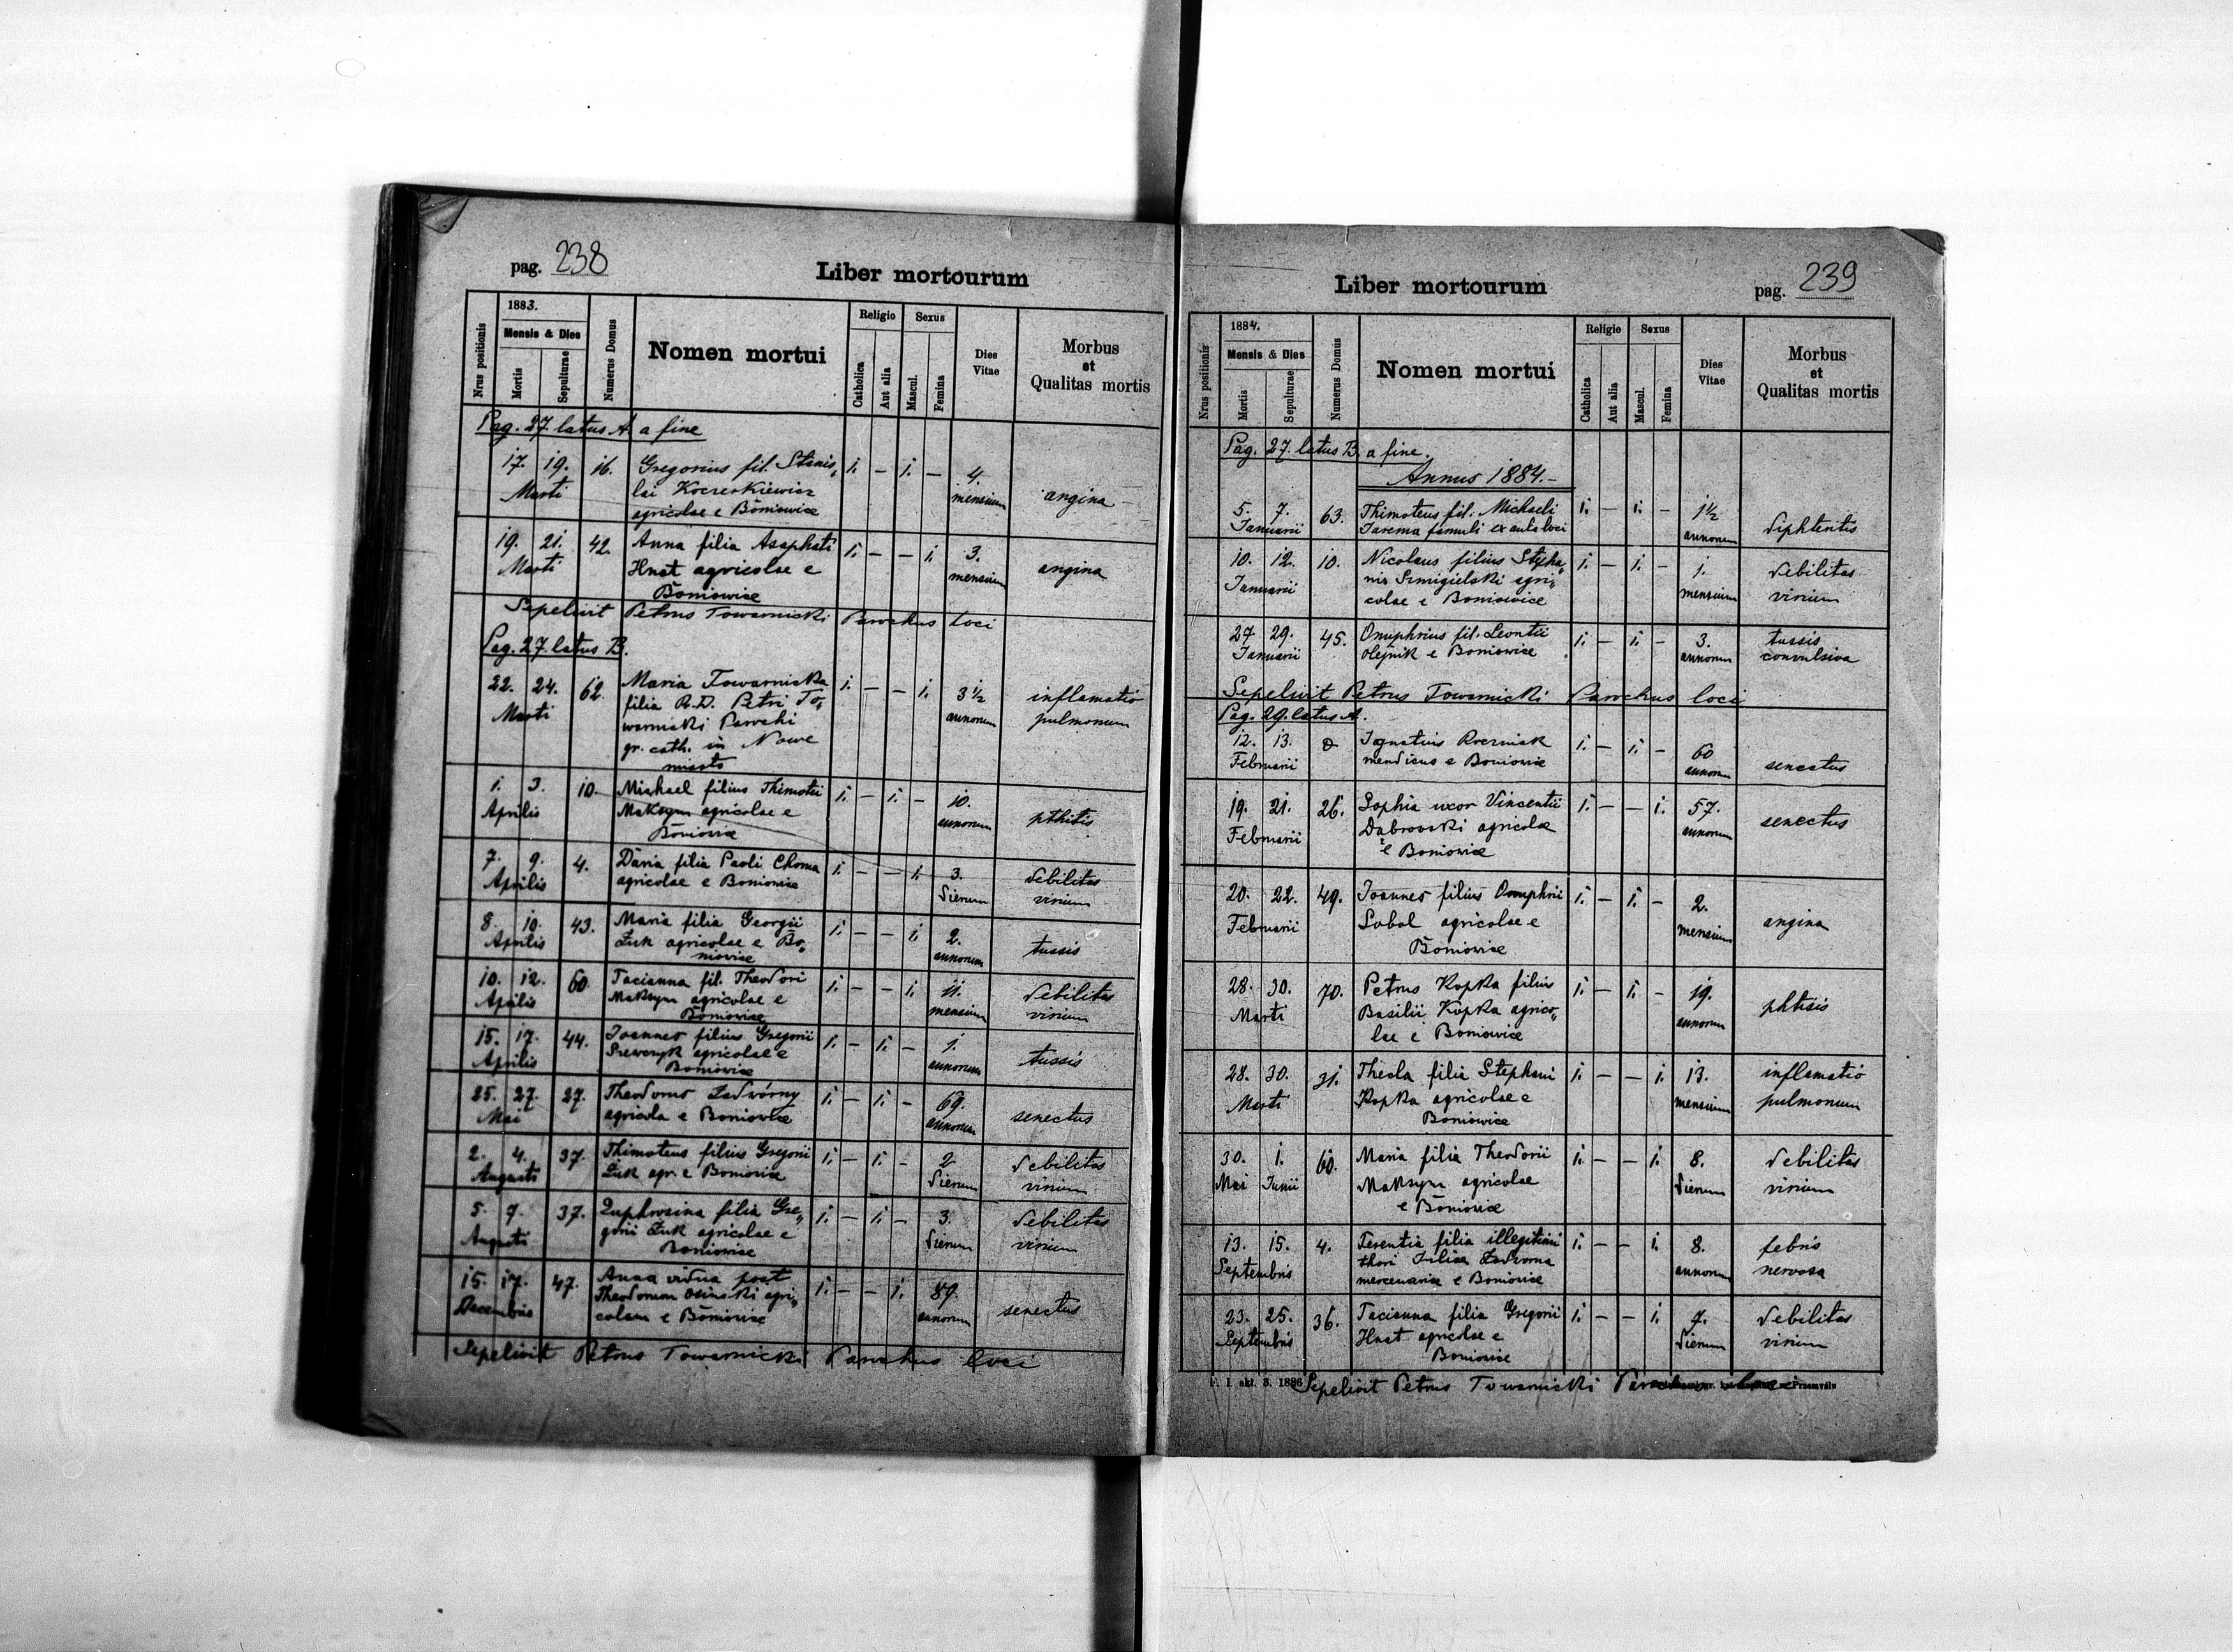 pag. 238
Liber mortourum
1883.
Mensis & Dies
Nrus positionis
Mortis
Sepulturae
Numerus Domus
Nomen mortui
Religio
Catholica
Aut alia
Sexus
Mascul.
Femina
Dies
Vitae
Morbus
et
Qualitas mortis
Pag. 27. latus A. a fine
17. 19. 16. Gregorius fil. Stanis„ i. – i. – 4.
Marti lai agricolae e Boniowice mensium angina
19. 21. 42. Anna filia Asaphati i. – – i. 3.
Marti Hnat agricolae e mensium angina
Boniowice
Sepelivit Petrus Towarnicki Parochus loci
Pag. 27. latus B.
22. 24. 62. Maria Towarnicka i. – – i. 3 1/2 inflamatio
Marti filia R.D. Petri To„ annorum pulmonum
warnicki Parochi
gr. cath. in Nowe
miasto
1. 3. 10. Michael filius Thimotei i. – i. – 10.
Aprilis Maksym agricolae e annorum pthitis
Boniowice
7. 9. 4. Daria filia Paoli Choma i. – – i. 3. debilitas
Aprilis agricolae e Boniowice dierum virium
8. 10. 43. Maria filia Georgii i. – – i. 2.
Aprilis Żuk agricolae e Bo„ annorum tussis
niowice
10. 12. 60. Tacianna fil. Theodori i. – – i. 11. debilitas
Aprilis Maksym agricolae e mensium virium
Boniowice
15. 17. 44. Joannes filius Gregorii i. – i. – 1.
Aprilis Szewczyk agricolae e annorum tussis
Boniowice
25. 27. 27. Theodorus Zadwórny i. – i. – 69.
Mai agricola e Boniowice annorum senectus
2. 4. 37. Thimoteus filius Gregorii i. – i. – 2 debilitas
Augusti Żuk agr. e Boniowice dierum virium
5. 7. 37. Euphrosina filia Gre„ i. – i. – 3. debilitas
Augusti gorii Żuk agricolae e dierum virium
Boniowice
15. 17. 47. Anna vidua post i. – – i. 89.
Decembris Theodorum Osinski agri„ annorum senectus
colam e Boniowice
Sepelivit Petrus Towarnicki Parochus loci
Liber mortourum
pag. 239
1884.
Mensis & Dies
Nrus positionis
Mortis
Sepulturae
Numerus Domus
Nomen mortui
Religio
Catholica
Aut alia
Sexus
Mascul.
Femina
Dies
Vitae
Morbus
et
Qualitas mortis
Pag. 27. latus B. a fine.
Annus 1884.–
5. 7. 63. Thimoteus fil. Michaeli i. – i. – 1 1/2
Januarii Jarema famuli ex aula loci annorum
10. 12. 10. Nicolaus filius Stepha„ i. – i. – 1. debilitas
Januarii nis Szmigielski agri„ mensium virium
colae e Boniowice
27 29. 45. Onuphrius fil. Leontii i. – i. – 3. tussis
Januarii olejnik e Boniowice annorum convulsiva
Sepelivit Petrus Towarnicki Parochus loci
Pag. 29. latus A.
12. 13. Ignatius i. – i. – 60
Februarii mendicus e Boniowice annorum senectus
19. 21. 26. Sophia uxor Vincentii i. – – i. 57.
Februarii Dabrowski agricolae annorum senectus
e Boniowice
20. 22. 49. Joannes filius Onuphrii i. – i. – 2.
Februarii Sobol agricolae e mensium angina
Boniowice
28. 30. 70. Petrus Kopka filius i. – i. – 19.
Marti Basilii Kopka agrico„ annorum phtisis
lae e Boniowice
28. 30. 31. Thecla filia Stephani i. – – i. 13. inflamatio
Marti Kopka agricolae e mensium pulmonum
Boniowice
30. 1. 60. Maria filia Theodorii i. – – i. 8. debilitas
Mai Junii Maksym agricolae dierum virium
e Boniowice
13. 15. 4. Terentia filia illegitimi i. – – i. 8. febris
Septembris thori Juliae Zadworna annorum nervosa
mercenaria e Boniowice
23. 25. 36. Tacianna filia Gregorii i. – – i. 7. debilitas
Septembris Hnat agricolae e dierum virium
Boniowice
Sepelivit Petrus Towarnicki Parochus loci